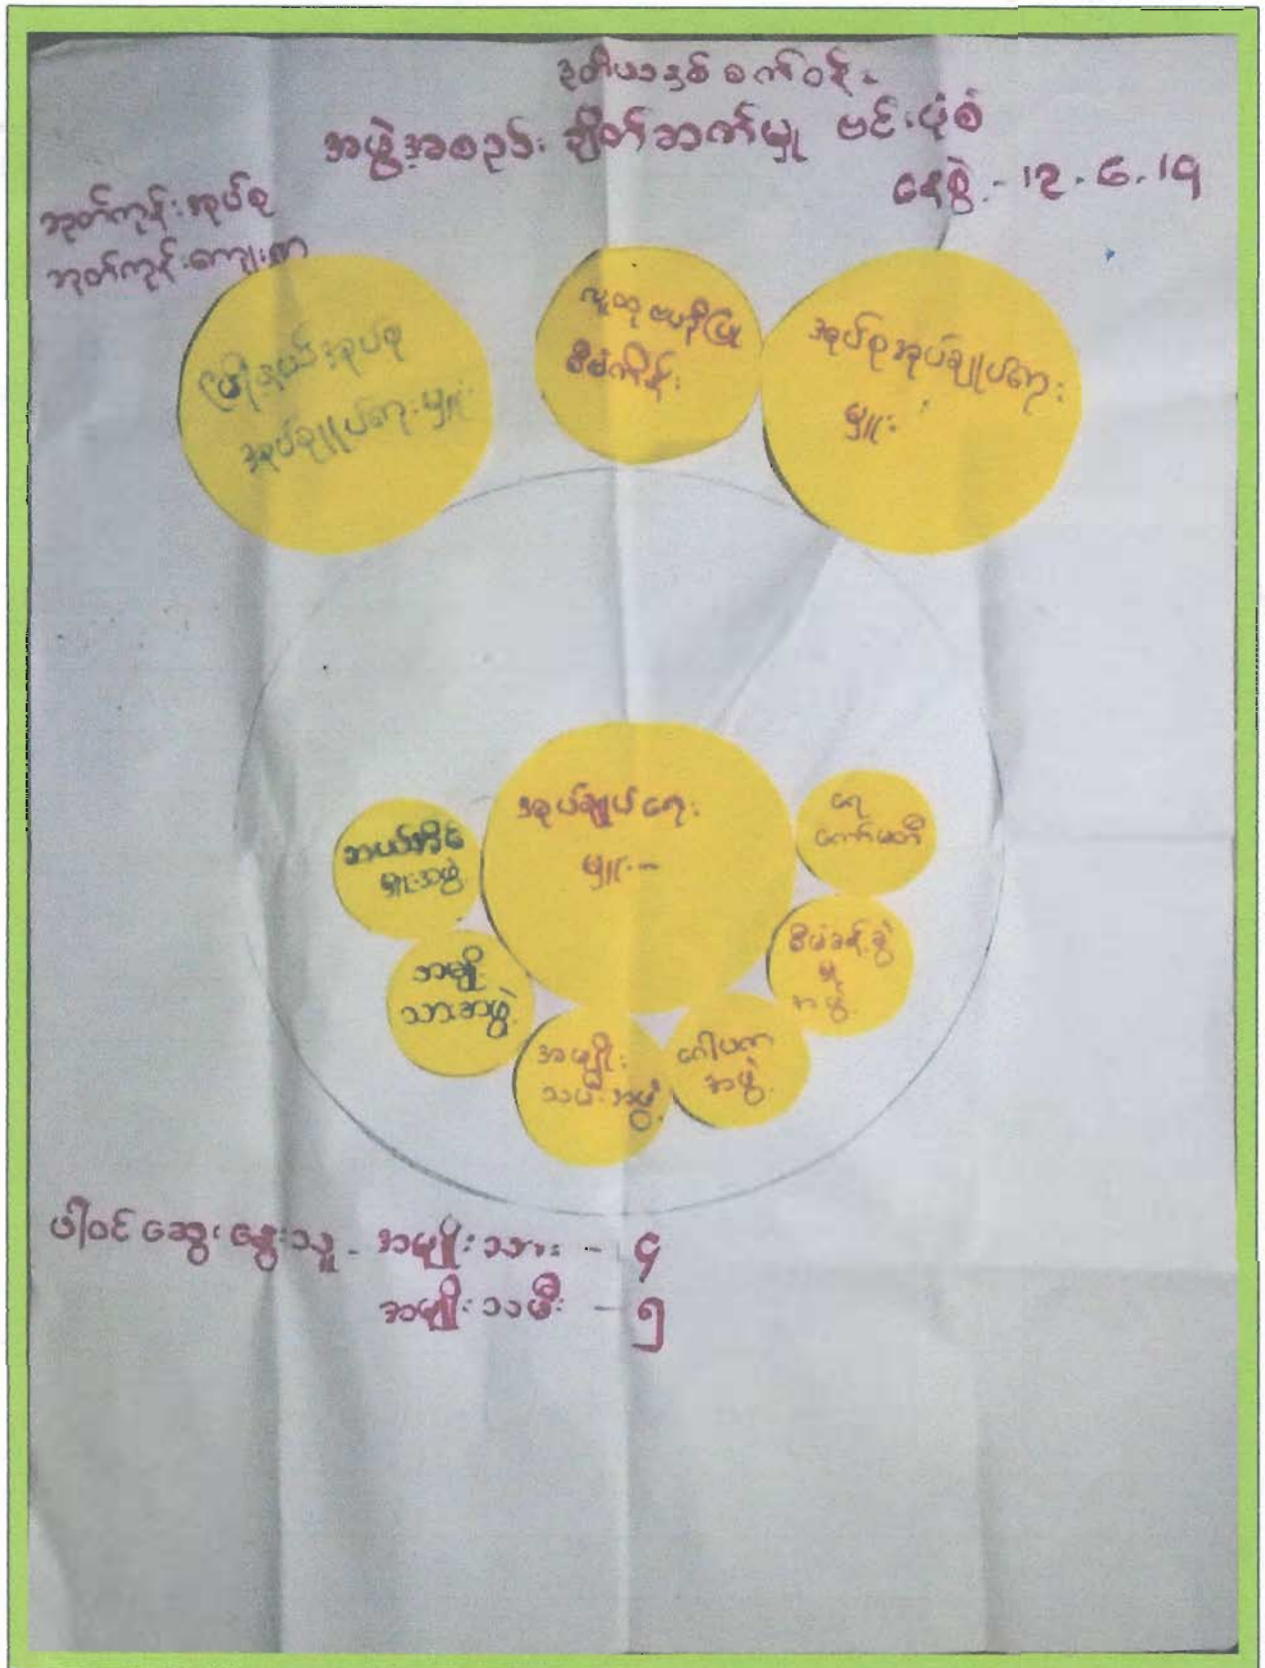 ဒုတိယနှစ် စက်ဝန်း
အဖွဲ့အစည်း ချိတ်ဆက်မှု ဗင်းပုံစံ
နေ့စွဲ - ၁၂.၆.၁၅
အုတ်ကုန်းအုပ်စု
အုတ်ကုန်းကျေးရွာ
မြို့နယ်အုပ်စု
အုပ်ချုပ်ရေးမှူး
လူထုဗဟိုပြု
စီမံကိန်း
အုပ်စုအုပ်ချုပ်ရေး
မှူး
အုပ်ချုပ်ရေး
မှူး
ဆယ်အိမ်
မှူးအဖွဲ့
အမျိုး
သားအဖွဲ့
အမျိုး
သမီးအဖွဲ့
ဂေါပက
အဖွဲ့
စီမံခန့်ခွဲ
မှု
အဖွဲ့
ရေ
ကော်မတီ
ပါဝင်ဆွေးနွေးသူ - အမျိုးသား - ၄
အမျိုးသမီး - ၅